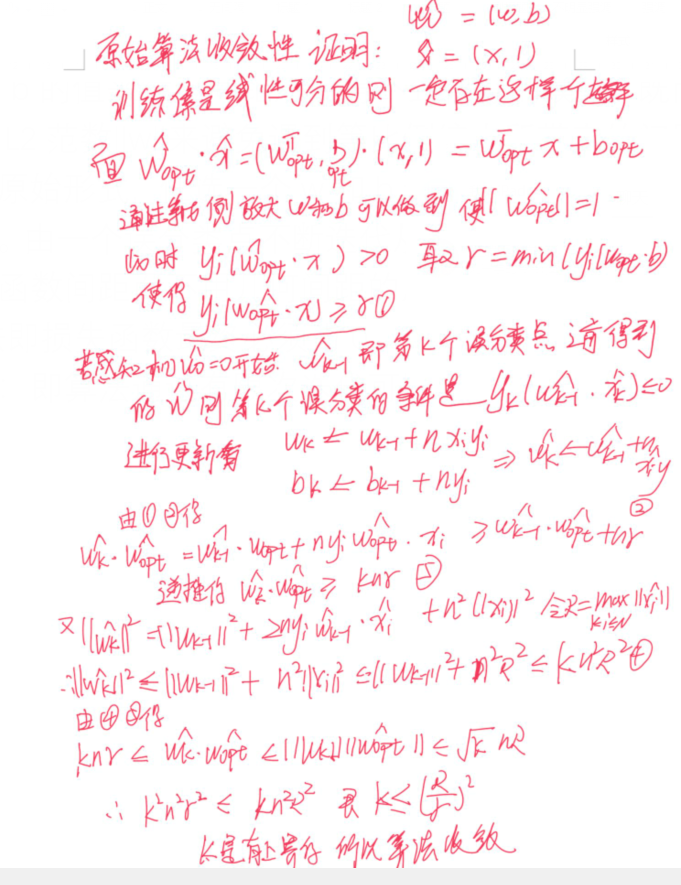 ŵ = (w, b)
原始算法收敛性 证明: x̂ = (x, 1)
训练集是线性可分的则 一定存在这样个超平
面 ŵopt · x̂ = (wᵀopt, bopt) · (x, 1) = wᵀopt x + bopt
通过等比例放大w和b可以做到 使||ŵopt|| = 1
此时 yi(ŵopt · x) > 0 取 r = min(yi(wopt·b)
使得 yi(ŵopt · x) ≥ r ①
若感知机 ŵ0 = 0开始 ŵk-1 即第k个误分类点之前得到
的ŵ 则第k个误分类的条件是 yk(ŵk-1 · x̂k) ≤ 0
进行更新有 wk ← wk-1 + n xi yi
bk ← bk-1 + n yi ⇒ ŵk ← ŵk-1 + n x̂i y ②
由①②得
ŵk · ŵopt = ŵk-1 · wopt + n yi ŵopt · xi ≥ ŵk-1 · ŵopt + nr
递推得 ŵk · ŵopt ≥ knr
又 ||ŵk||² = ||wk-1||² + 2nyi ŵk-1 · x̂i + n²||xi||² 令R = max ||x̂i||
∴ ||ŵk||² ≤ ||wk-1||² + n²||xi||² ≤ ||wk-1||² + n²R² ≤ kn²R² ④
由④③得
knr ≤ ŵk · ŵopt ≤ ||wk|| ||ŵopt|| ≤ √k nR
∴ k²n²r² ≤ kn²R² 则 k ≤ (R/r)²
k是有上界得 所以算法收敛